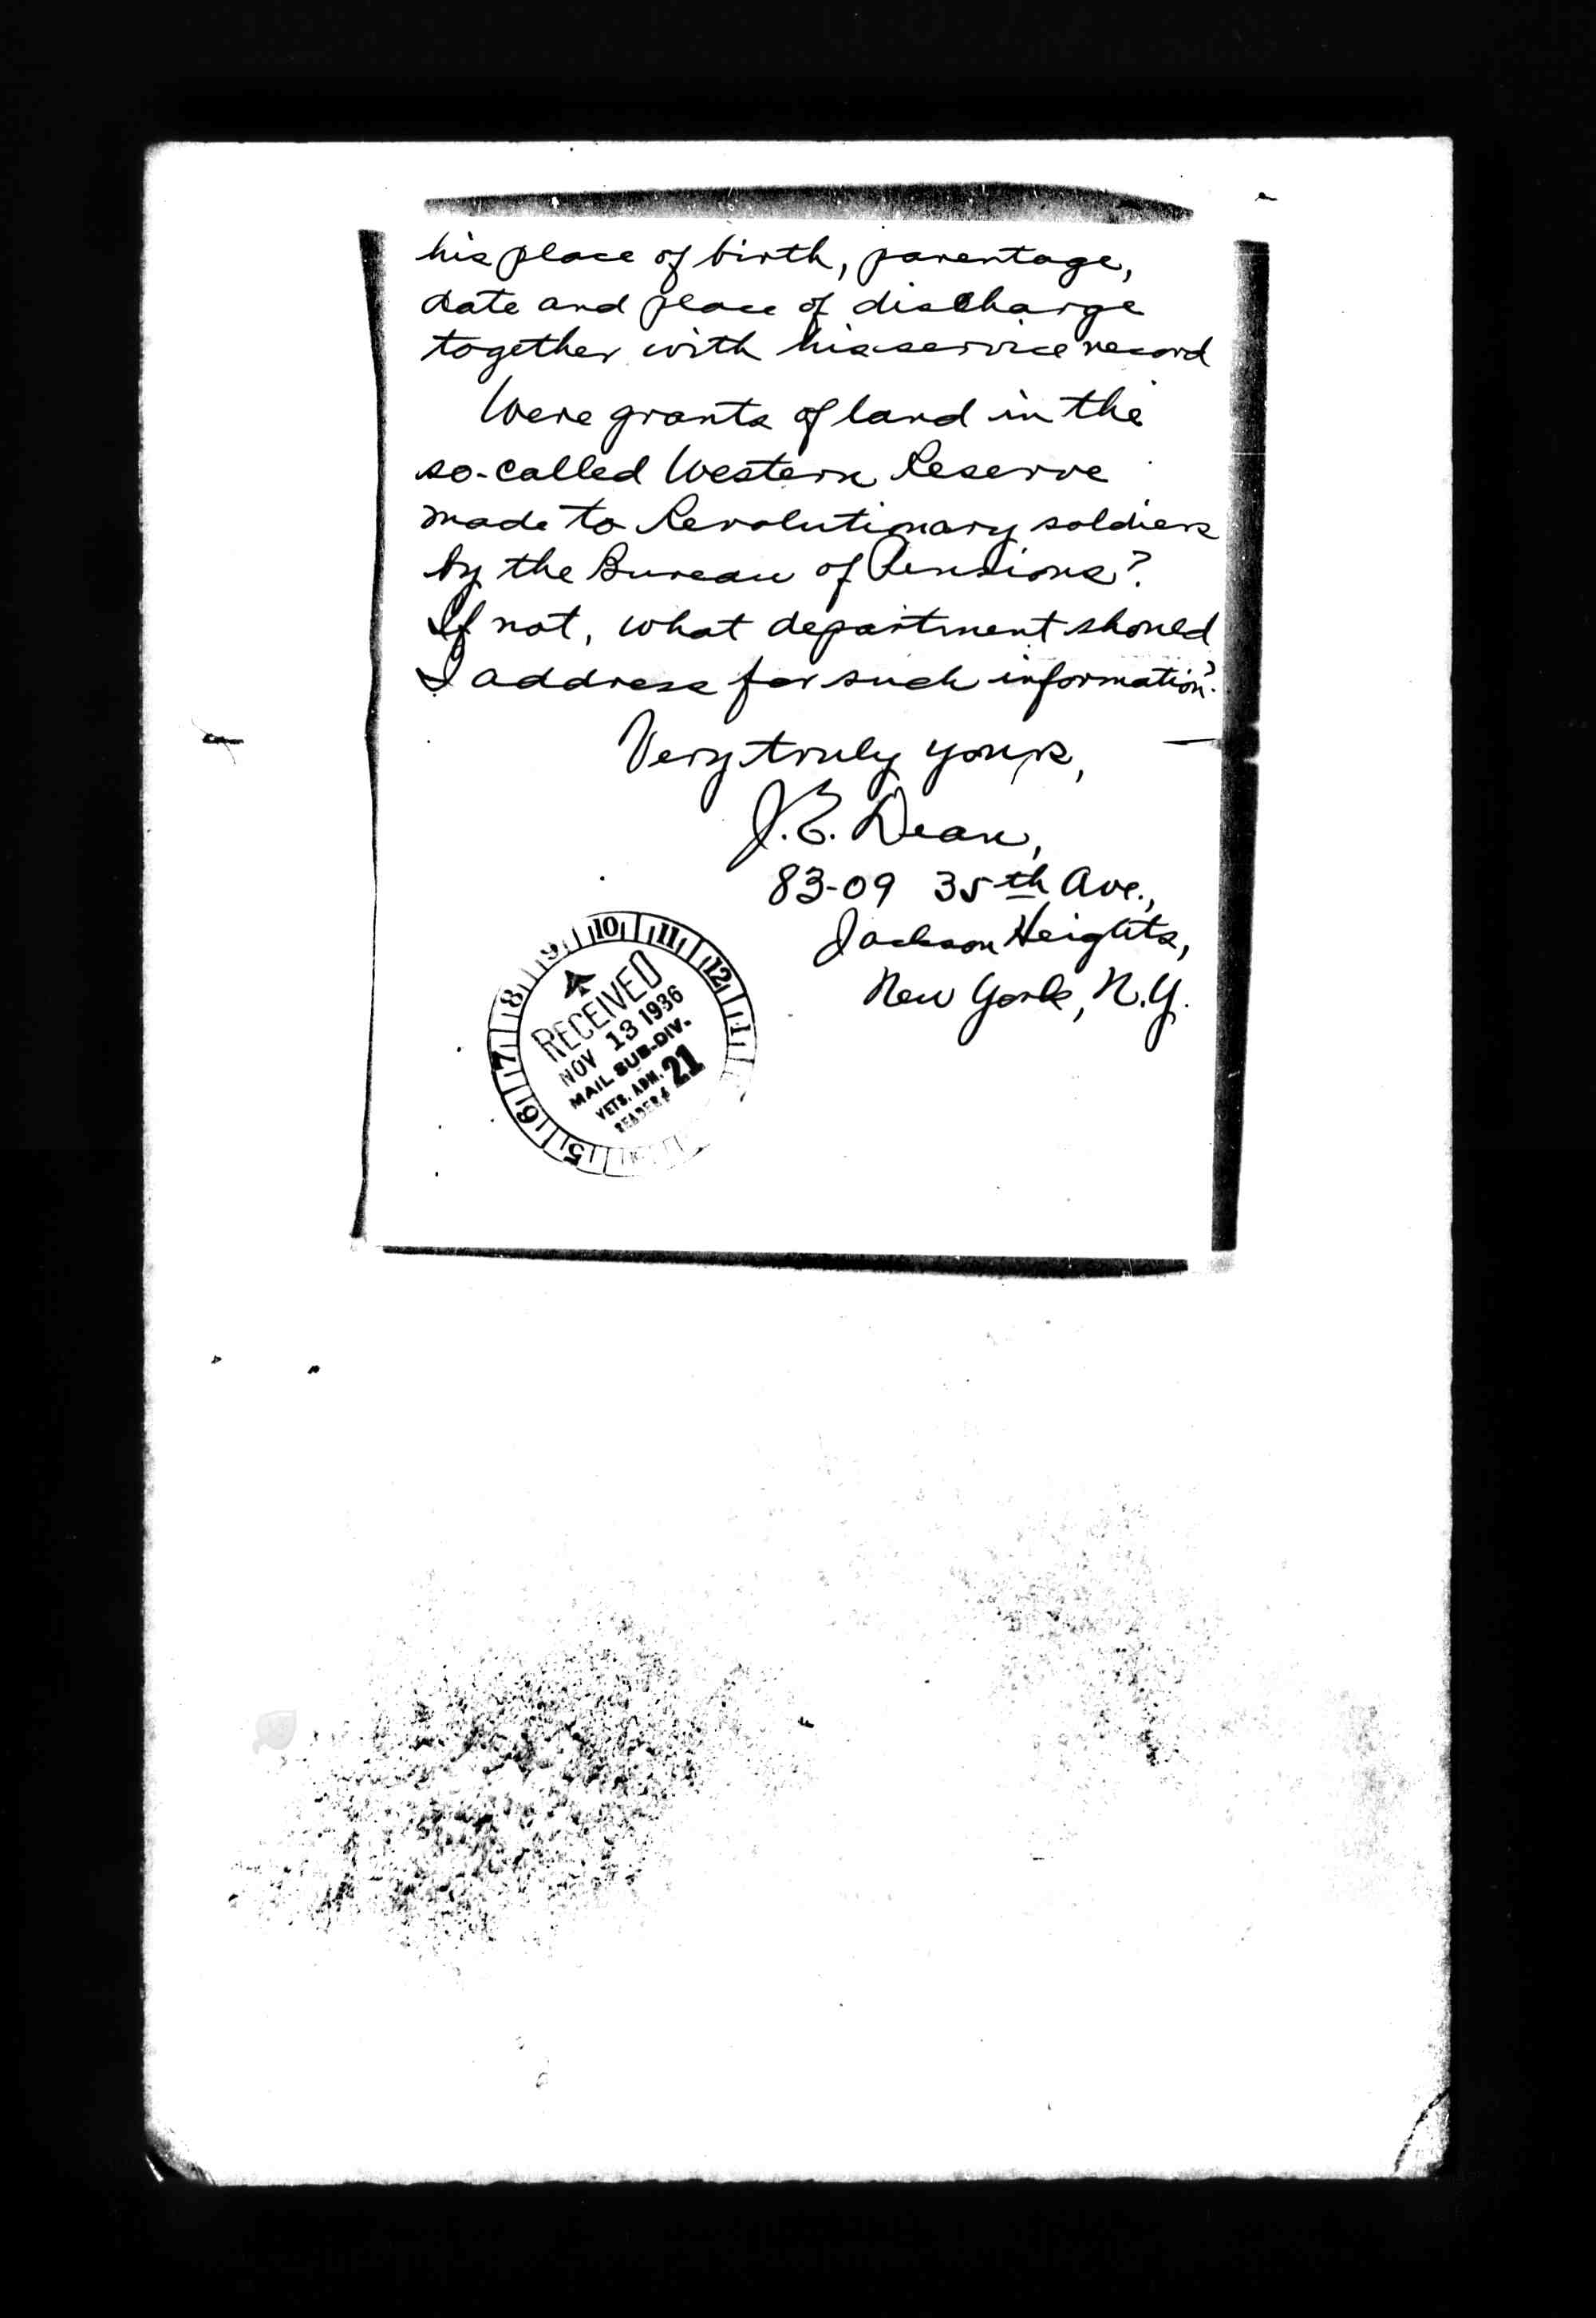 his place of birth, parentage,
date and place of discharge
together with his service record
Were grants of land in the
so-called Western Reserve
made to Revolutionary soldiers
by the Bureau of Pensions?
If not, what department should
I address for such information?
Very truly yours,
J. E. Dean,
83-09 35th Ave.,
Jackson Heights,
New York, N.Y.
9 10 11 12 1
8 7 6 5
RECEIVED
NOV 13 1936
MAIL SUB-DIV.
VETS. ADM. 21
READER